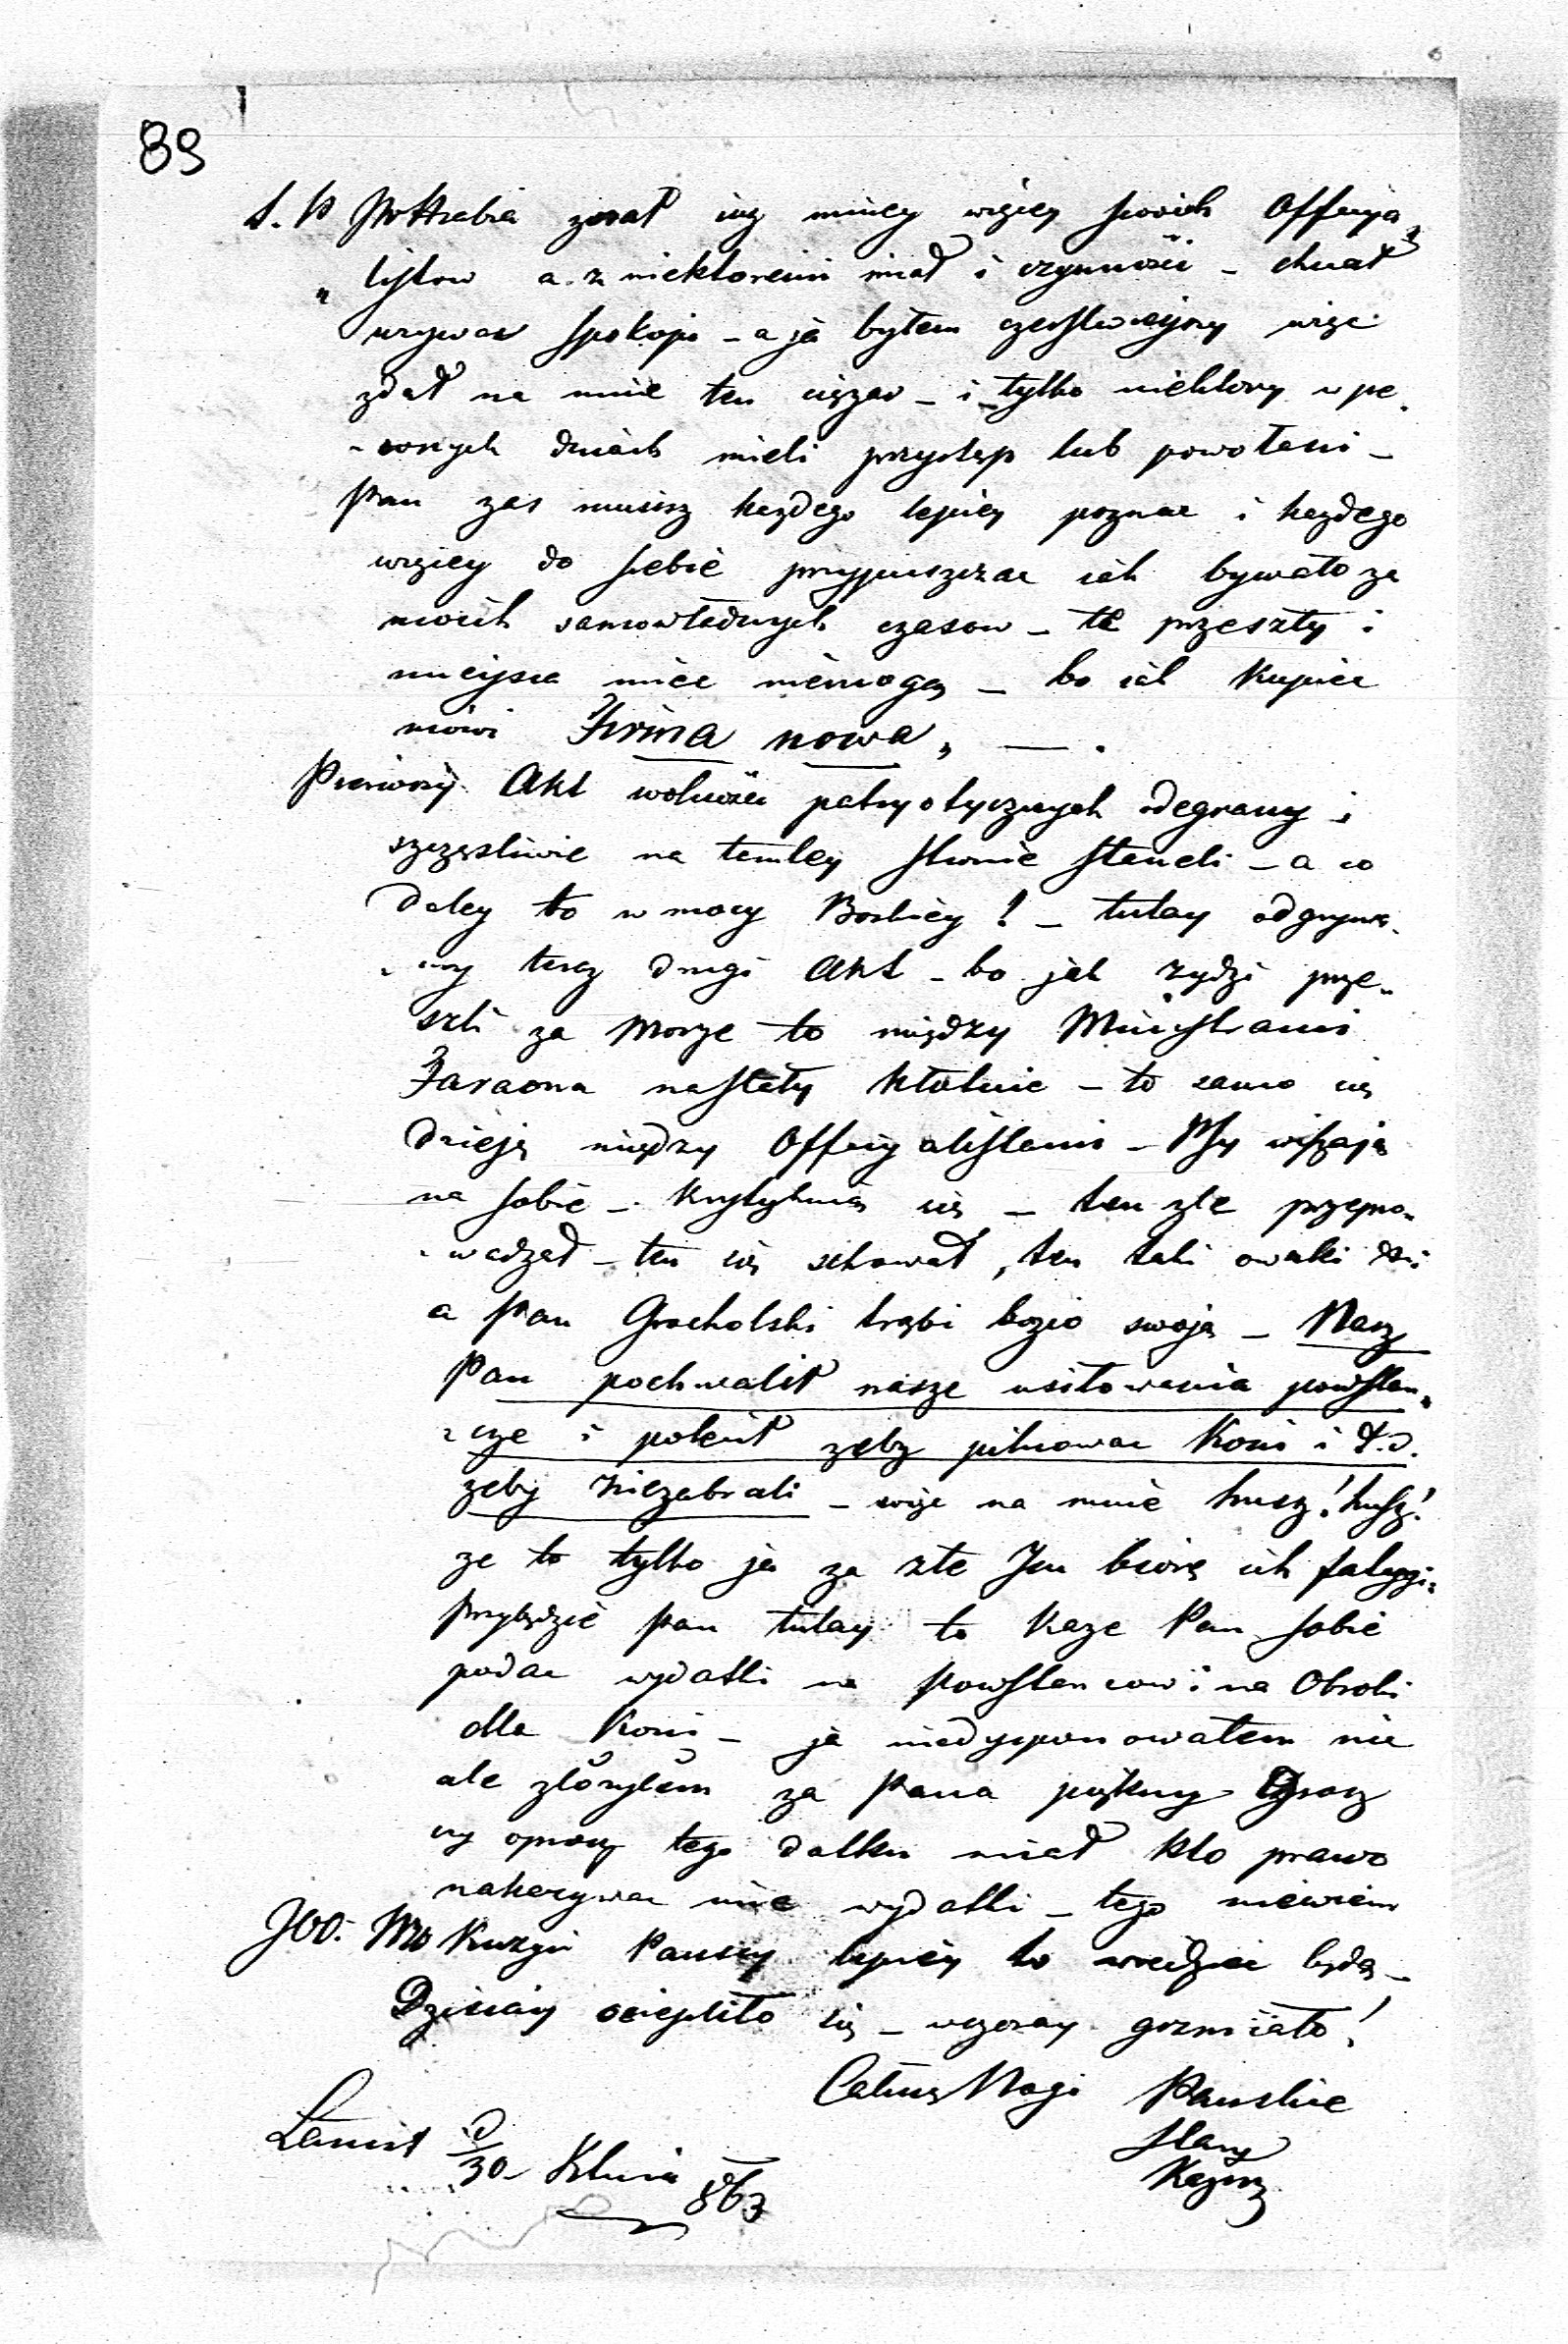 89
S. P. JW Hrabia znał iuz mniey więcey swoich Officya„
„listow a z niektoremi miał i czynnosci – chciał
uzywac spokoju – a ja byłem czerstwieyszy więc
zdał na mnie ten cięzar – i tylko niektory w pe„
„wnych dniach mieli przystęp lub powołani –
Pan zas musisz kazdego lepiey poznac i kazdego
więcey do siebie przypuszczac iak bywało za
moich samowładnych czasow – te przeszły i
mieysca miec niemogą – bo iak Kupiec
mówi Firma nowa„ — .
Pierwszy Akt wolności patryotycznych odegrany i
szczęsliwie na tamtey stronie staneli – a co
daley to w mocy Boskiey! – tutay odgrywa„
„my teraz drugi Akt – bo jak zydzi prze„
szli za Morze to między Ministrami
Faraona nastały kłótnie – to samo się
dzieje między Officyalistami – Psy wiszają
na sobie – krytykują się – ten zle przepro„
„wadzał – ten się schował, ten taki owaki
a Pan Grocholski trąbi swoją – Nasz
Pan pochwalił nasze usiłowania powstan„
„cze i polecił zeby pilnowac Koni i t.d.
zeby niezabrali – więc na mnie husz! husz!
ze to tylko ja za złe Im biorę ich fatygi„
Przybędzie Pan tutay to kaze Pan sobie
podac wydatki na Powstancow i na Obroki
dla Koni – ja niedysponowałem nic
ale złozyłem za Pana piękny Grosz
czy oprocz tego datku miał kto prawo
nakazywac inne wydatki – tego niewiem
JW. Kuzyn Panscy lepiey to wiedziec będą –
Dzisiay ociepliło się – wczoray grzmiało!
Całuię Nogi Panskie
Stary
Łancut d/30 – Ktnia 863